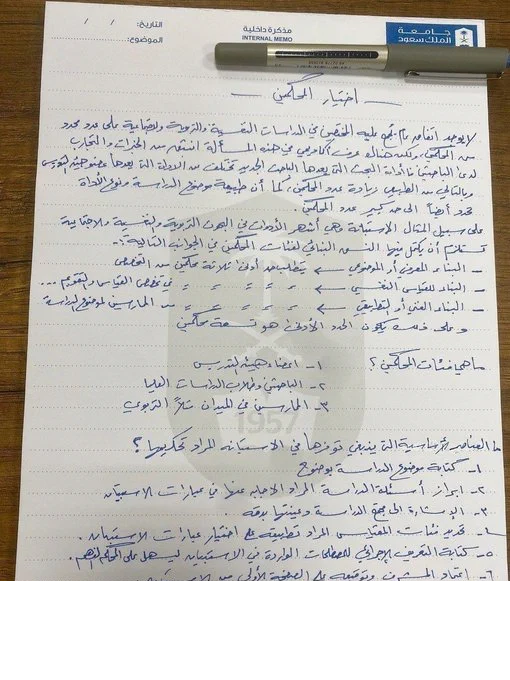 جامعة
الملك سعود
مذكرة داخلية
INTERNAL MEMO
التاريخ: / /
الموضوع:
اختيار المحكمين
لا يوجد اتفاق تام يجمع عليه المختصين في الدراسات النفسية والتربوية والاجتماعية على عدد محدد
من المحكمين، ولكن هناك عرف أكاديمي في هذه المسألة انتقل من الخبرات والتجارب
لدى الباحثين، فأدوات البحث التي يعدها الباحث الجديد تختلف عن الأداة التي يعدها عضو هيئة التدريس
وبالتالي من الطبيعي زيادة عدد المحكمين، كما أن طبيعة موضوع الدراسة ونوع الأداة
تحدد أيضاً إلى حد كبير عدد المحكمين.
على سبيل المثال الاستبانة وهي أشهر الأدوات في البحوث التربوية والنفسية والاجتماعية
تستلزم أن يكتمل فيها النسق البنائي لفئات المحكمين في الجوانب التالية:-
- البناء المعرفي أو الموضوعي ← يتطلب حد أدنى ثلاثة محكمين من التخصص
- البناء للقياس النفسي ← " " " " في تخصص القياس والتقويم ...
- البناء الفني أو التطبيقي ← " " " " من الممارسين لموضوع الدراسة
وعلى ذلك يكون الحد الأدنى هو تسعة محكمين
ما هي فئات المحكمين؟
١- أعضاء هيئة التدريس
٢- الباحثين وطلاب الدراسات العليا
٣- الممارسين في الميدان مثلاً التربوي
1957
ما العناصر الأساسية التي ينبغي توفرها في الاستبانة المراد تحكيمها؟
١- كتابة موضوع الدراسة بوضوح
٢- إبراز أسئلة الدراسة المراد الإجابة عنها في عبارات الاستبيان
٣- الإشارة إلى منهج الدراسة وعينتها بدقة
٤- تحديد فئات المقياس المراد تطبيقه على اختيار عبارات الاستبيان.
٥- كتابة التعريف الإجرائي للمصطلحات الواردة في الاستبيان ليسهل على المحكم الفهم.
٦- اعتماد المشرف وتوقيعه على الصفحة الأولى من